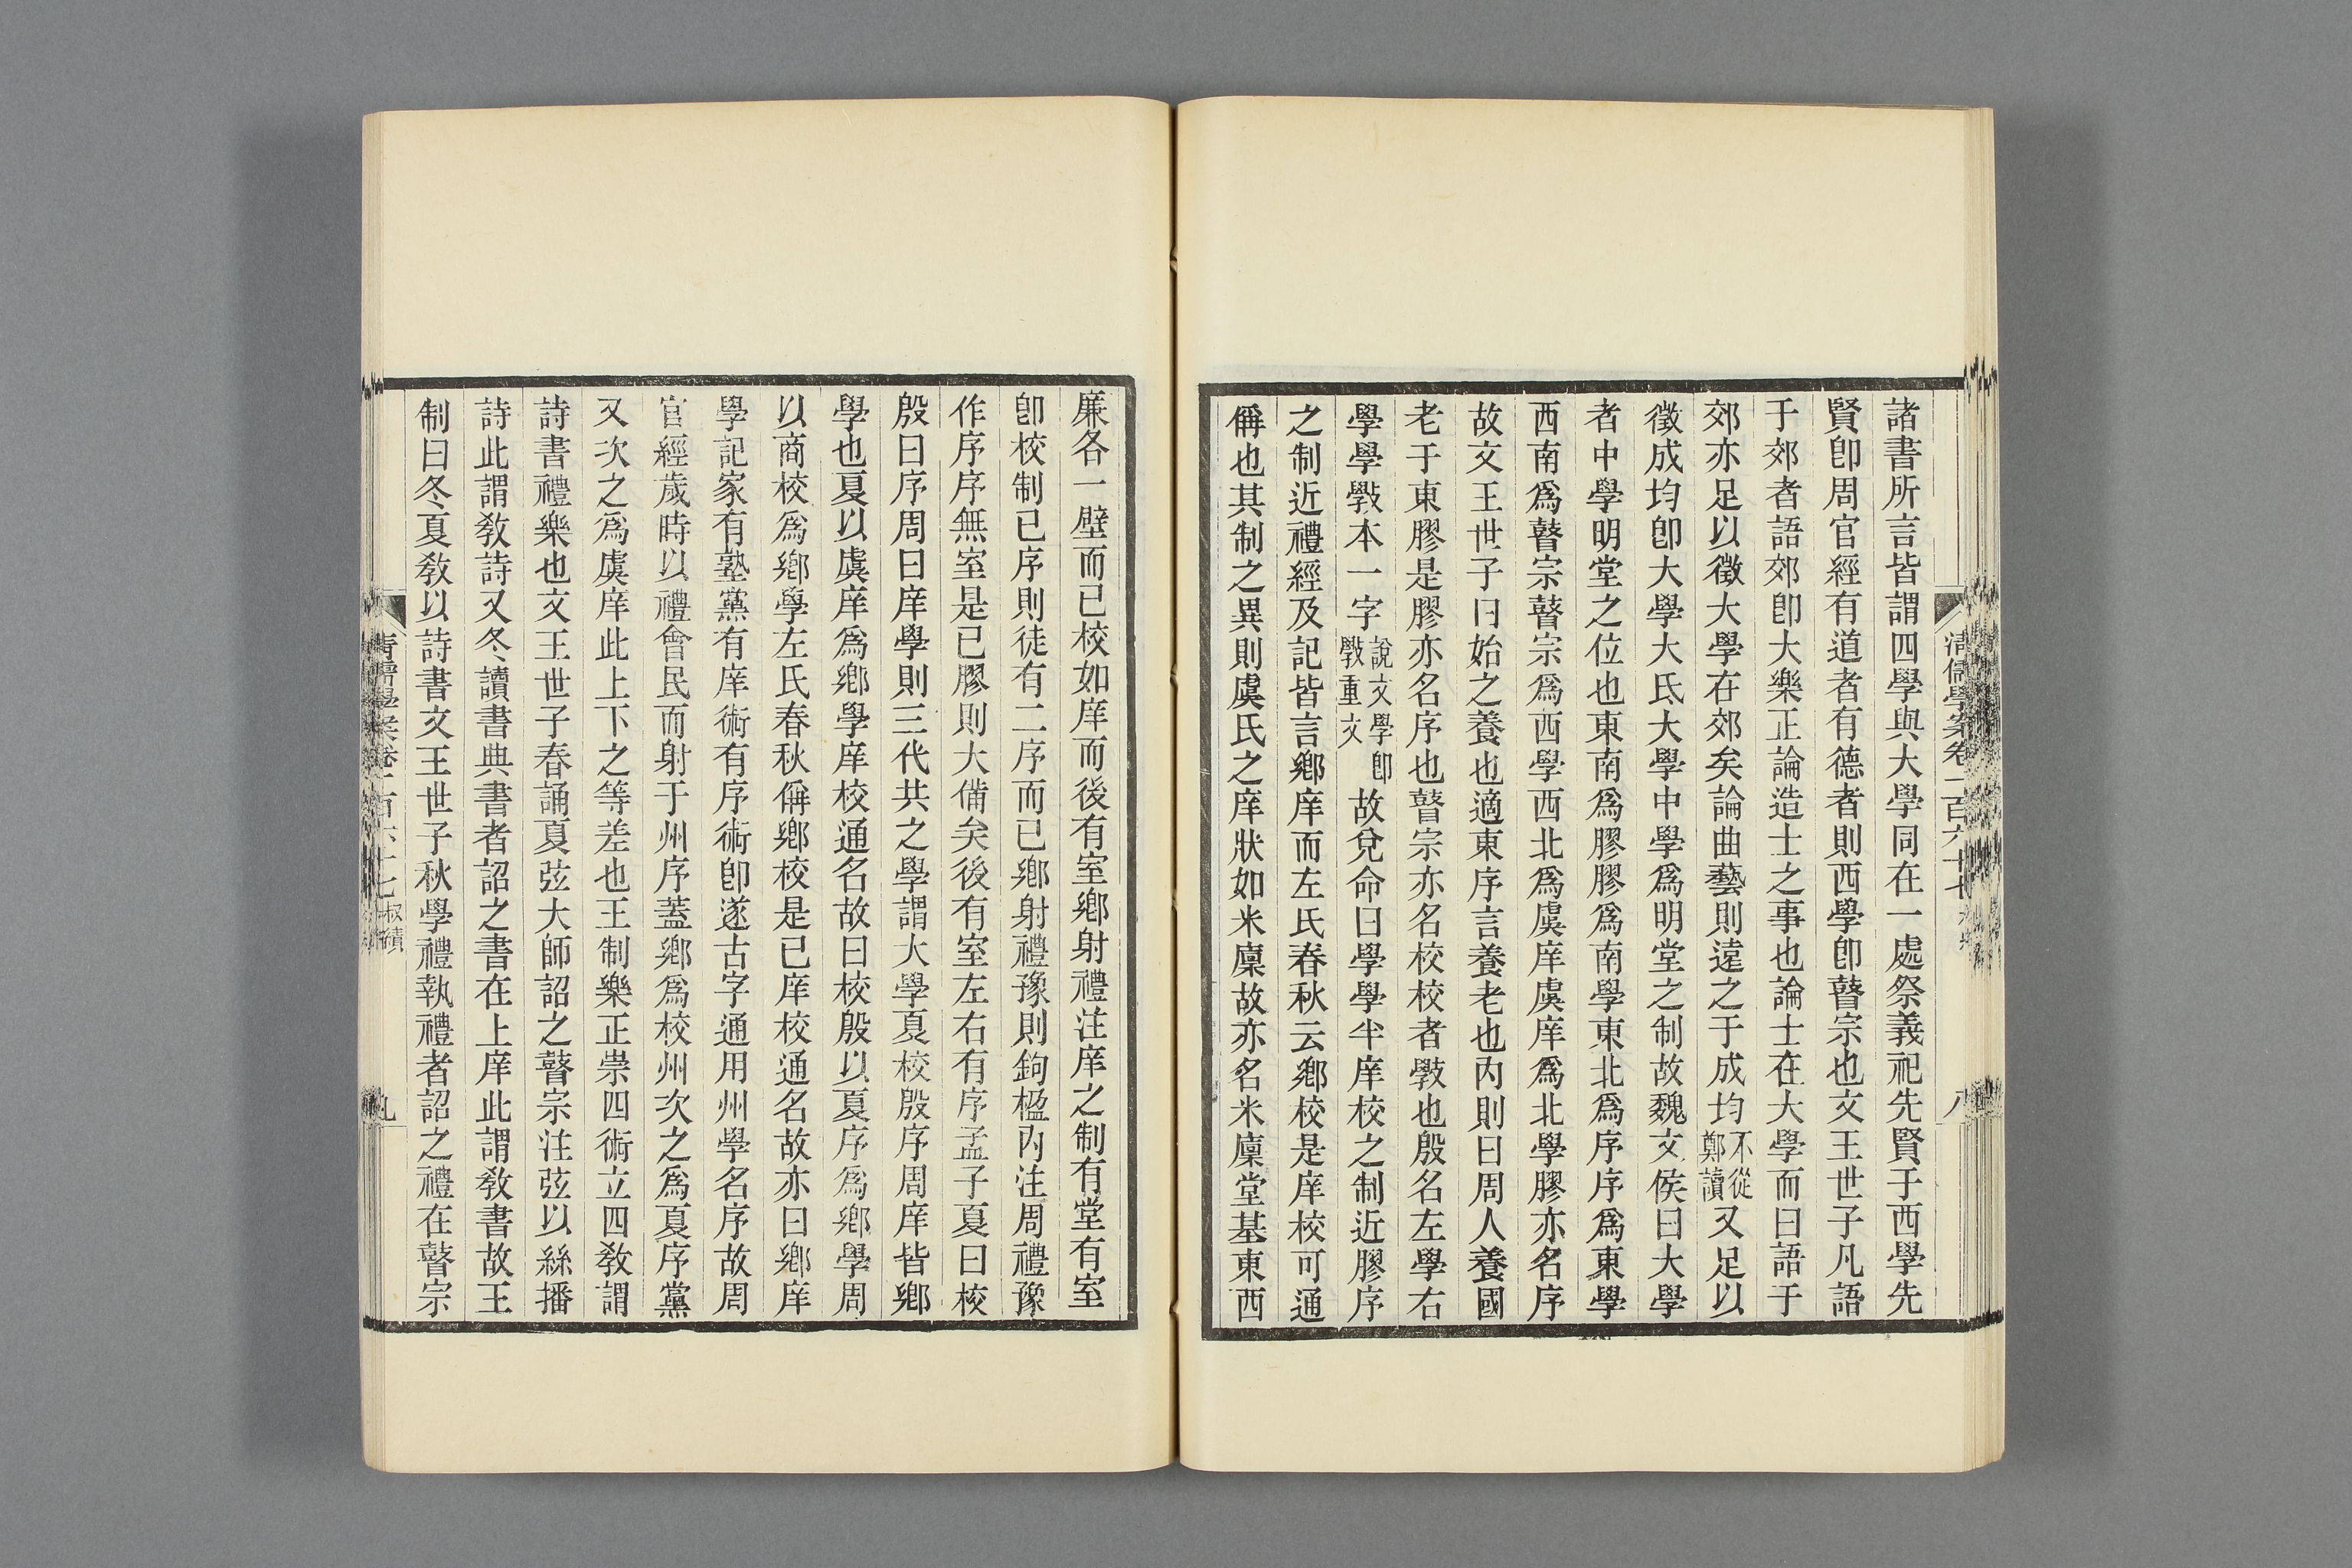 諸書所言皆謂四學與大學同在一處祭義祀先賢于西學先
賢卽周官經有道者有德者則西學卽瞽宗也文王世子凡語
于郊者語郊卽大樂正論造士之事也論士在大學而曰語于
郊亦足以徵大學在郊矣論曲藝則遠之于成均不從鄭讀又足以
徵成均卽大學大氐大學中學爲明堂之制故魏文侯曰大學
者中學明堂之位也東南爲膠膠爲南學東北爲序序爲東學
西南爲瞽宗瞽宗爲西學西北爲虞庠虞庠爲北學膠亦名序
故文王世子曰始之養也適東序言養老也內則曰周人養國
老于東膠是膠亦名序也瞽宗亦名校校者斆也殷名左學右
學學斆本一字說文學卽斆重文故兌命曰學學半庠校之制近膠序
之制近禮經及記皆言鄉庠而左氏春秋云鄉校是庠校可通
稱也其制之異則虞氏之庠狀如米廩故亦名米廩堂基東西
清儒學案卷一百六十七
八
廉各一壁而已校如庠而後有室鄉射禮注庠之制有堂有室
卽校制已序則徒有二序而已鄉射禮豫則鉤楹內注周禮豫
作序序無室是已膠則大備矣後有室左右有序孟子夏曰校
殷曰序周曰庠學則三代共之學謂大學夏校殷序周庠皆鄉
學也夏以虞庠爲鄉學庠校通名故曰校殷以夏序爲鄉學周
以商校爲鄉學左氏春秋稱鄉校是已庠校通名故亦曰鄉庠
學記家有塾黨有庠術有序術卽遂古字通用州學名序故周
官經歲時以禮會民而射于州序蓋鄉爲校州次之爲夏序黨
又次之爲虞庠此上下之等差也王制樂正崇四術立四敎謂
詩書禮樂也文王世子春誦夏弦大師詔之瞽宗注弦以絲播
詩此謂敎詩又冬讀書典書者詔之書在上庠此謂敎書故王
制曰冬夏敎以詩書文王世子秋學禮執禮者詔之禮在瞽宗
清儒學案卷一百六十七
九